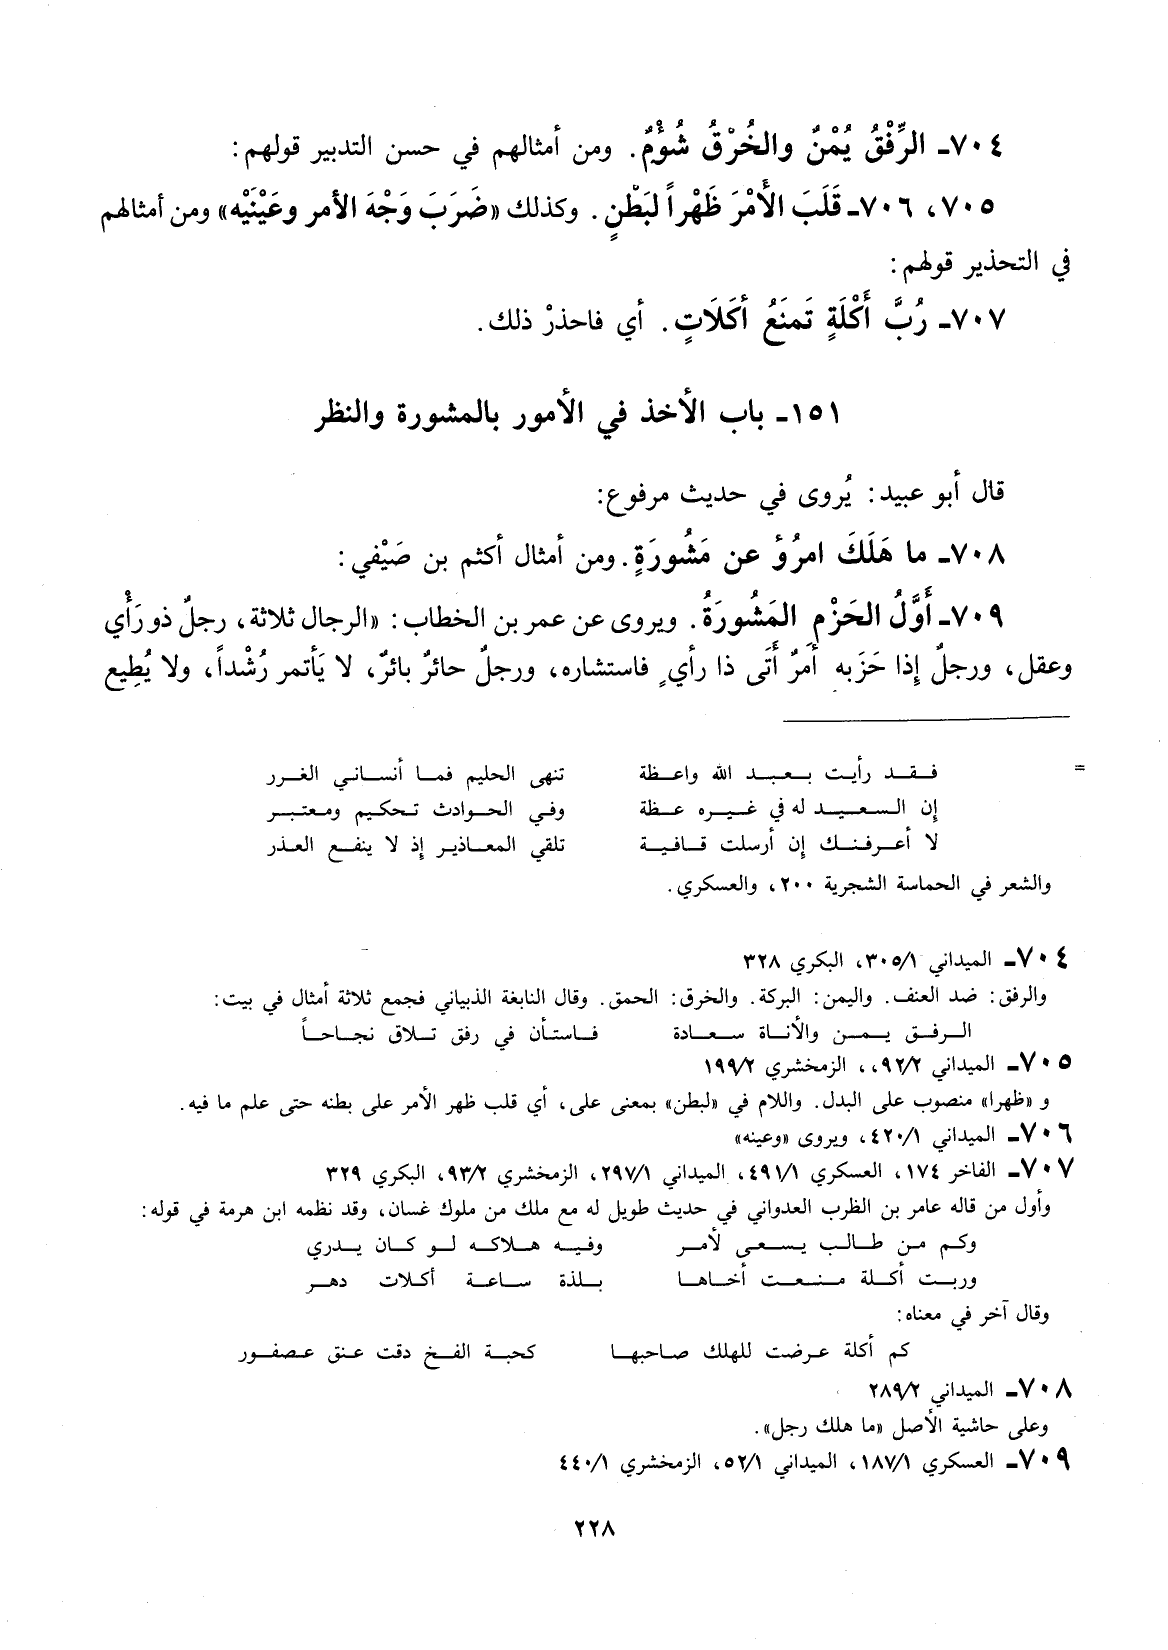 ٧٠٤ـ الرِّفْقُ يُمْنٌ والخُرْقُ شُؤْمٌ. ومن أمثالهم في حسن التدبير قولهم:
٧٠٥، ٧٠٦ـ قَلَبَ الأَمْرَ ظَهْراً لبَطْنٍ. وكذلك «ضَرَبَ وَجْهَ الأمر وعَيْنَيْه» ومن أمثالهم
في التحذير قولهم:
٧٠٧ـ رُبَّ أَكْلَةٍ تَمنَعُ أكَلَاتٍ. أي فاحذرْ ذلك.
١٥١ـ باب الأخذ في الأمور بالمشورة والنظر
قال أبو عبيد: يُروى في حديث مرفوع:
٧٠٨ـ ما هَلَكَ امرُؤ عن مَشُورَةٍ. ومن أمثال أكثم بن صَيْفي:
٧٠٩ـ أَوَّلُ الحَزْمِ المَشُورَةُ. ويروى عن عمر بن الخطاب: «الرجال ثلاثة، رجلٌ ذو رَأْي
وعقل، ورجلٌ إذا حَزَبه أمرٌ أَتَى ذا رأيٍ فاستشاره، ورجلٌ حائرٌ بائرٌ، لا يَأتمر رُشْداً، ولا يُطِيع
= فقد رأيت بعبد الله واعظة تنهى الحليم فما أنساني الغرر
إن السعيد له في غيره عظة وفي الحوادث تحكيم ومعتبر
لا أعرفنك إن أرسلت قافية تلقي المعاذير إذ لا ينفع العذر
والشعر في الحماسة الشجرية ٢٠٠، والعسكري.
٧٠٤ـ الميداني ٣٠٥/١، البكري ٣٢٨
والرفق: ضد العنف. واليمن: البركة. والخرق: الحمق. وقال النابغة الذبياني فجمع ثلاثة أمثال في بيت:
الرفق يمن والأناة سعادة فاستأن في رفق تلاق نجاحاً
٧٠٥ـ الميداني ٩٢/٢،، الزمخشري ١٩٩/٢
و «ظهرا» منصوب على البدل. واللام في «لبطن» بمعنى على، أي قلب ظهر الأمر على بطنه حتى علم ما فيه.
٧٠٦ـ الميداني ٤٢٠/١، ويروى «وعينه»
٧٠٧ـ الفاخر ١٧٤، العسكري ٤٩١/١، الميداني ٢٩٧/١، الزمخشري ٩٣/٢، البكري ٣٢٩
وأول من قاله عامر بن الظرب العدواني في حديث طويل له مع ملك من ملوك غسان، وقد نظمه ابن هرمة في قوله:
وكم من طالب يسعى لأمر وفيه هلاكه لو كان يدري
وربت أكلة منعت أخاها بلذة ساعة أكلات دهر
وقال آخر في معناه:
كم أكلة عرضت للهلك صاحبها كحبة الفخ دقت عنق عصفور
٧٠٨ـ الميداني ٢٨٩/٢
وعلى حاشية الأصل «ما هلك رجل».
٧٠٩ـ العسكري ١٨٧/١، الميداني ٥٢/١، الزمخشري ٤٤٠/١
٢٢٨